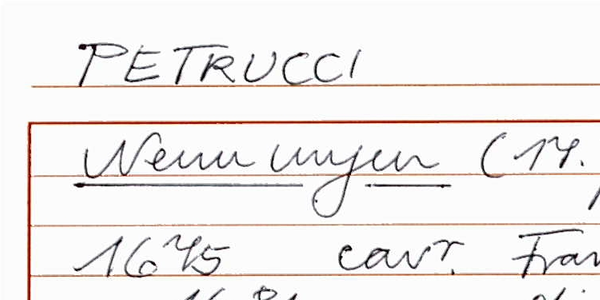 PETRUCCI
Nennungen (17.
1675 cav.